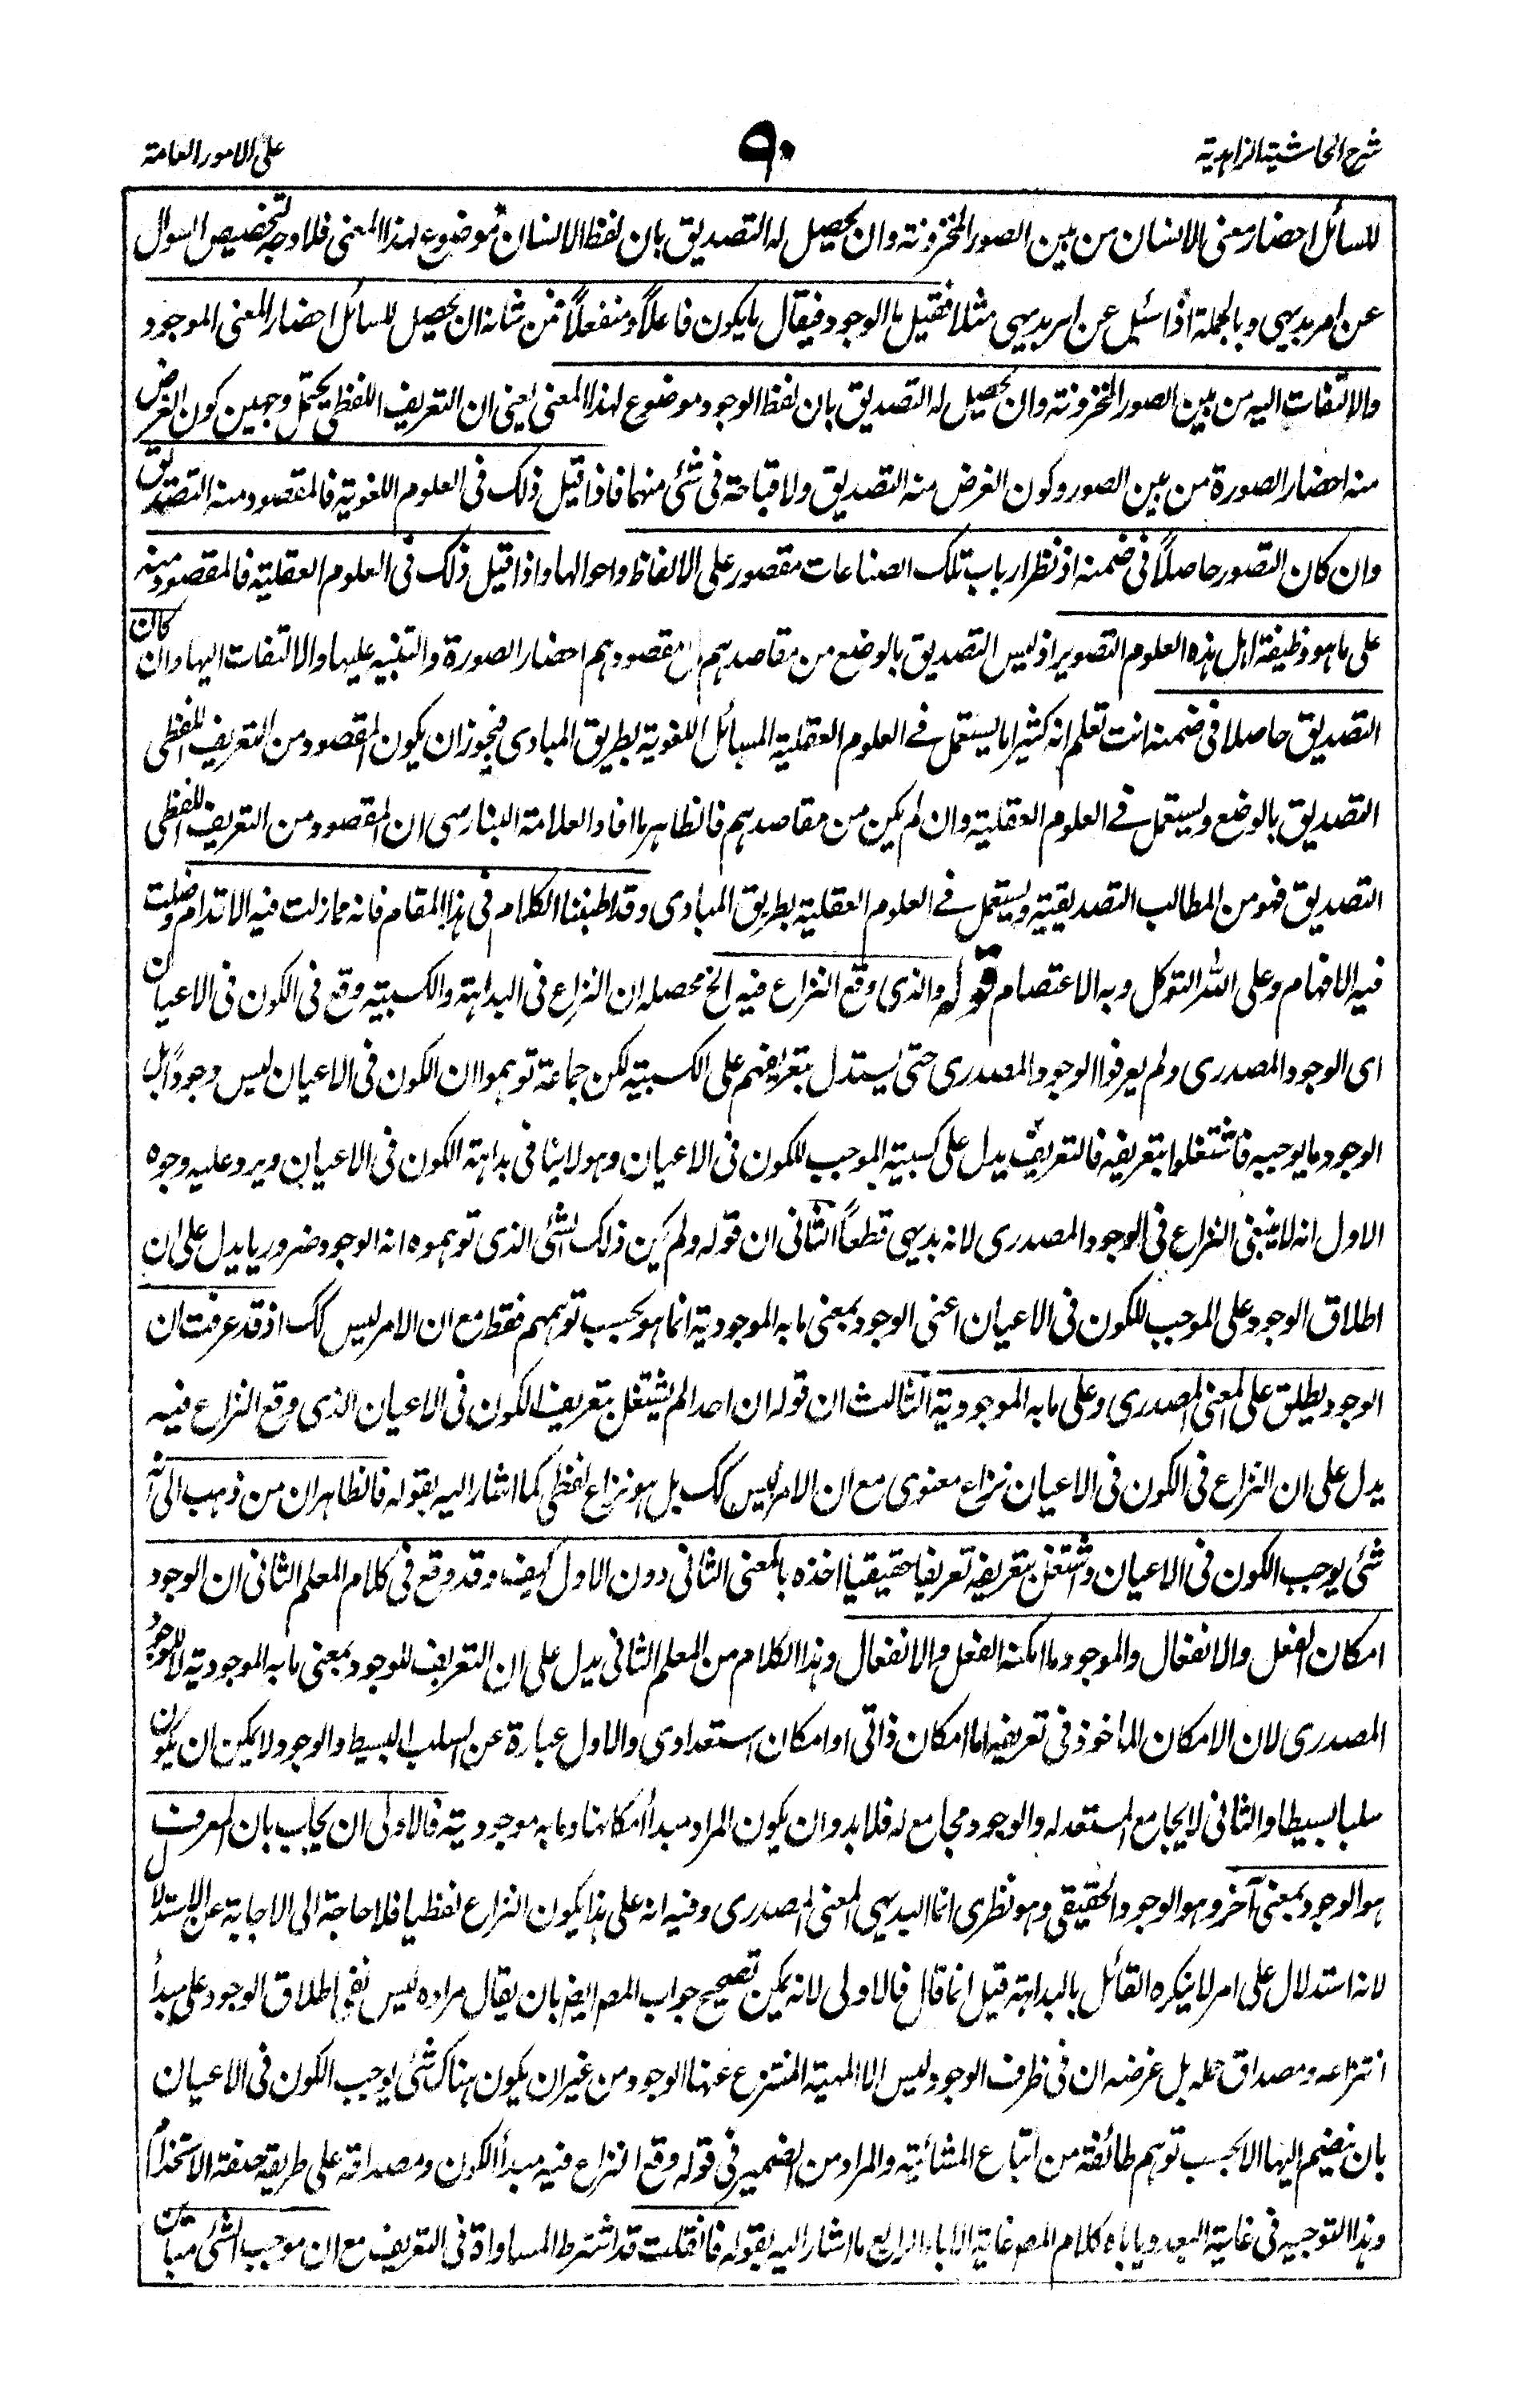 شرح الحاشية الزاهدية
٩٠
على الامور العامة
للسائل احضار معنى الانسان من بين الصور المخزونة وان يحصل له التصديق بان لفظ الانسان موضوع لهذا المعنى فلا وجه لتخصيص السوال
عن امر بديهى وبالجملة اذا سئيل عن امر بديهى مثلا فقيل ما الوجود فيقال ما يكون فاعلاً ومنفعلاً فمن شانه ان يحصل للسائل احضار المعنى الموجود
والالتفات اليه من بين الصور المخزونة وان يحصل له التصديق بان لفظ الوجود موضوع لهذا المعنى يعنى ان التعريف اللفظى يحتمل وجهين كون الغرض
منه احضار الصورة من بين الصور وكون الغرض منه التصديق ولا قباحة فى شئ منهما فاذا قيل ذلك فى العلوم اللغوية فالمقصود منه التصديق
وان كان التصور حاصلاً فى ضمنه اذ نظر ارباب تلك الصناعات مقصور على الالفاظ واحوالها واذا قيل ذلك فى العلوم العقلية فالمقصود منه
على ما هو وظيفة اهل هذه العلوم التصوير اذ ليس التصديق بالوضع من مقاصدهم بل مقصودهم احضار الصورة والتنبيه عليها والالتفات اليها وان كان
التصديق حاصلا فى ضمنه انت تعلم انه كثيرا ما يستعمل فے العلوم العقلية المسائل اللغوية بطريق المبادى فيجوز ان يكون المقصود من التعريف اللفظى
التصديق بالوضع ويستعمل فے العلوم العقلية وان لم يكن من مقاصدهم فالظاهر ما افاد العلامة البنارسى ان المقصود من التعريف اللفظى
التصديق فهو من المطالب التصديقية ويستعمل فے العلوم العقلية بطريق المبادى وقد اطنبنا الكلام فى هذا المقام فانه مما زلت فيه الاقدام وضلت
فيه الافهام وعلى الله التوكل وبه الاعتصام قوله والذى وقع النزاع فيه الخ محصله ان النزاع فى البداهة والكسبية وقع فى الكون فى الاعيان
اى الوجود المصدرى ولم يعرفوا الوجود المصدرى حتى يستدل بتعريفهم على الكسبية لكن جماعة توهموا ان الكون فى الاعيان ليس وجوداً بل
الوجود ما يوجبه فاشتغلوا بتعريفه فالتعريف يدل على كسبية الموجب للكون فى الاعيان وهو لا ينافى بداهة الكون فى الاعيان ويرد عليه وجوه
الاول انه لا ينبغى النزاع فى الوجود المصدرى لانه بديهى قطعاً الثانى ان قوله ولم يكن ذلك الشئ الذى توهموه انه الوجود ضروريا يدل على ان
اطلاق الوجود على الموجب للكون فى الاعيان اعنى الوجود بمعنى ما به الموجودية انما هو بحسب توهمهم فقط مع ان الامر ليس كك اذ قد عرفت ان
الوجود يطلق على المعنى المصدرى وعلى ما به الموجودية الثالث ان قوله ان احدا لم يشتغل بتعريف الكون فى الاعيان الذى وقع النزاع فيه
يدل على ان النزاع فى الكون فى الاعيان نزاع معنوى مع ان الامر ليس كك بل هو نزاع لفظى كما اشار اليه بقوله فالظاهر ان من ذهب الى انه
شئ يوجب الكون فى الاعيان واشتغل بتعريفه تعريفا حقيقيا اخذه بالمعنى الثانى دون الاول كيف وقد وقع فى كلام المعلم الثانى ان الوجود
امكان الفعل والانفعال والموجود ما امكنه الفعل والانفعال وهذا الكلام من المعلم الثانى يدل على ان التعريف للوجود بمعنى ما به الموجودية لا للوجود
المصدرى لان الامكان الماخوذ فى تعريفه اما امكان ذاتى او امكان استعدادى والاول عبارة عن السلب البسيط والوجود لا يمكن ان يكون
سلبا بسيطا والثانى لا يجامع المستعد له والوجود مجامع له فلابد وان يكون المراد مبدأ امكانهما وما به موجودية فالاولى ان يجاب بان المعرف
هو الوجود بمعنى آخر وهو الوجود الحقيقى وهو نظرى انما البديهى المعنى المصدرى وفيه انه على هذا يكون النزاع لفظيا فلا حاجة الى الاجابة عن الاستدلال
لانه استدلال على امر لا ينكره القائل بالبداهة قيل انما قال فالاولى لانه يمكن تصحيح جواب المصر ايضر بان يقال مراده ليس نفى اطلاق الوجود على مبدأ
انتزاعه ومصداق حمله بل غرضه ان فى ظرف الوجود ليس الا الماهية المنتزع عنها الوجود من غير ان يكون هناك شئ يوجب الكون فى الاعيان
بان ينضم اليها الا بحسب توهم طائفة من اتباع المشائية والمراد من الضمير فى قوله وقع النزاع فيه مبدأ الكون ومصداقه على طريقة صنعة الاستخدام
وهذا التوجيه فى غاية البعد وياباه كلام المصر غاية الاباء الرابع ما اشار اليه بقوله فان قلت قد اشترط المساواة فى التعريف مع ان موجب الشئ مباين